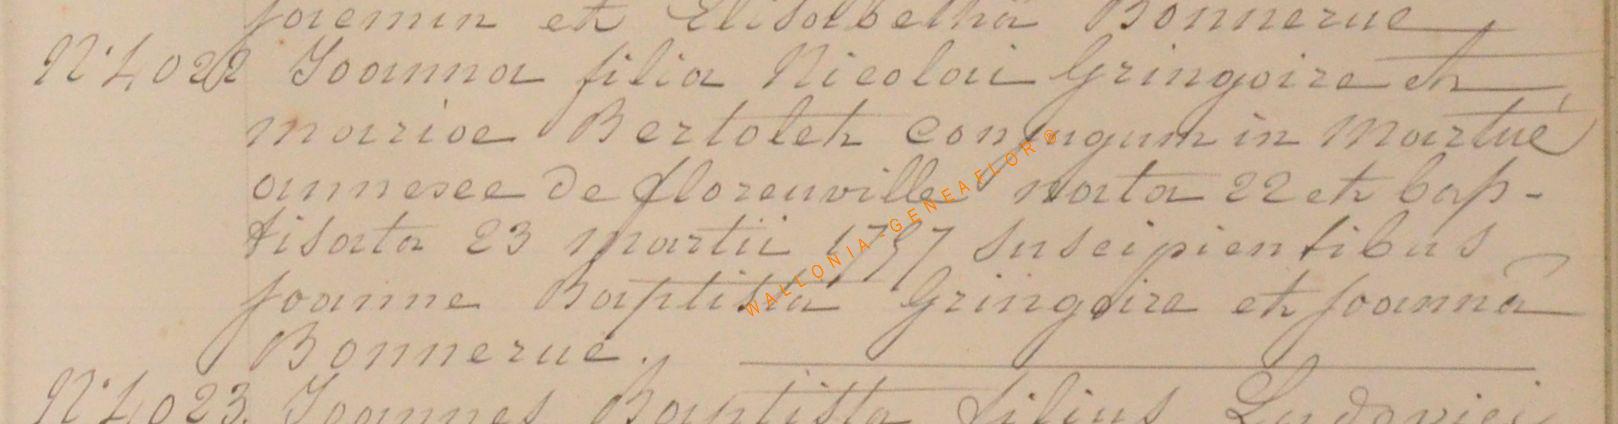 Joremin et Elisabetha Bonnerue
N° 4022 Joanna filia Nicolai Gringoire et
mariae Bertolet conjugum in Martué
annexee de florenville nata 22 et bap-
tisata 23 martii 1797 suscipientibus
joanne Baptista Gringoire et joanna
Bonnerue.
N° 4023. Joannes Baptista filius Ludovici
WALLONIA-GENEAFLOR©